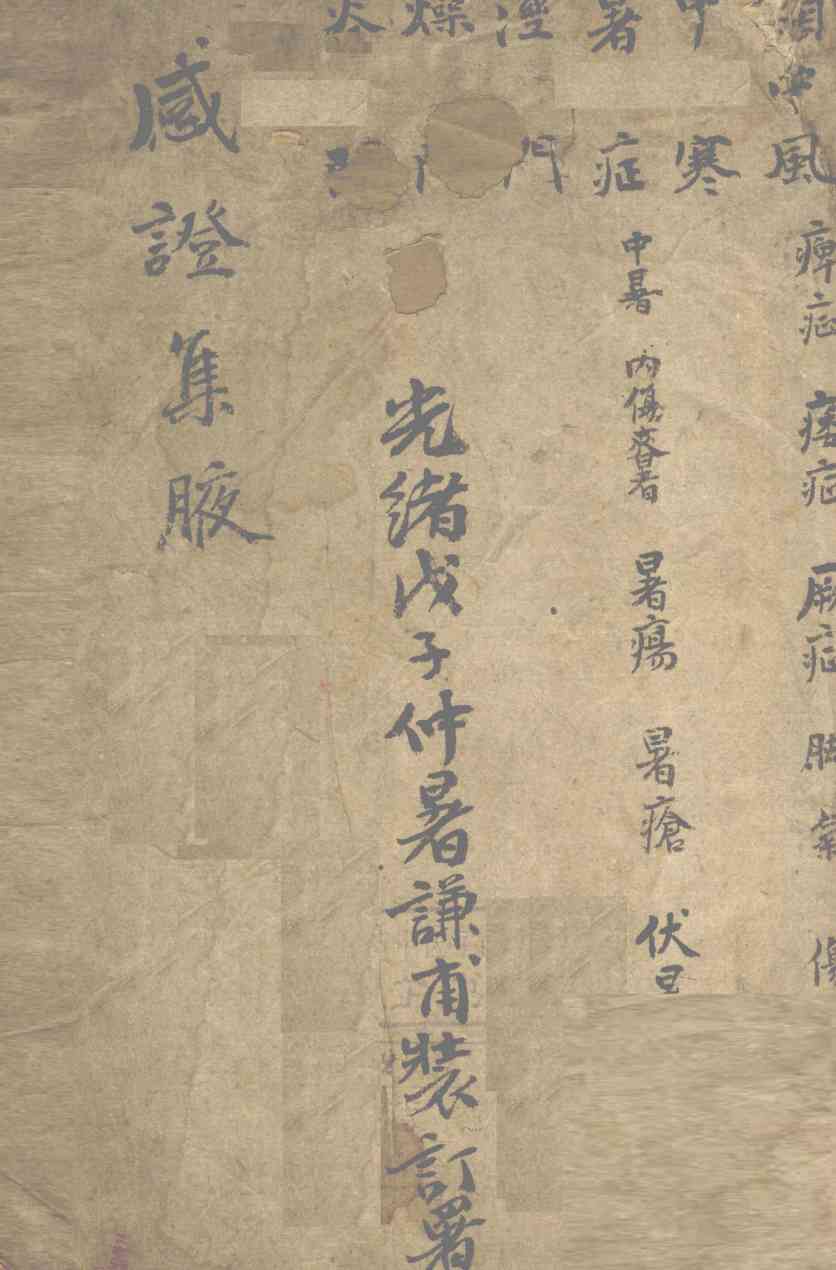 中風 痺症 痿症 厥症 脚氣 傷
中寒
暑症 中暑 內傷耆暑 暑瘍 暑瘡 伏
溼門
燥
炎
光緒戊子仲暑謙甫裝訂署
感證集腋